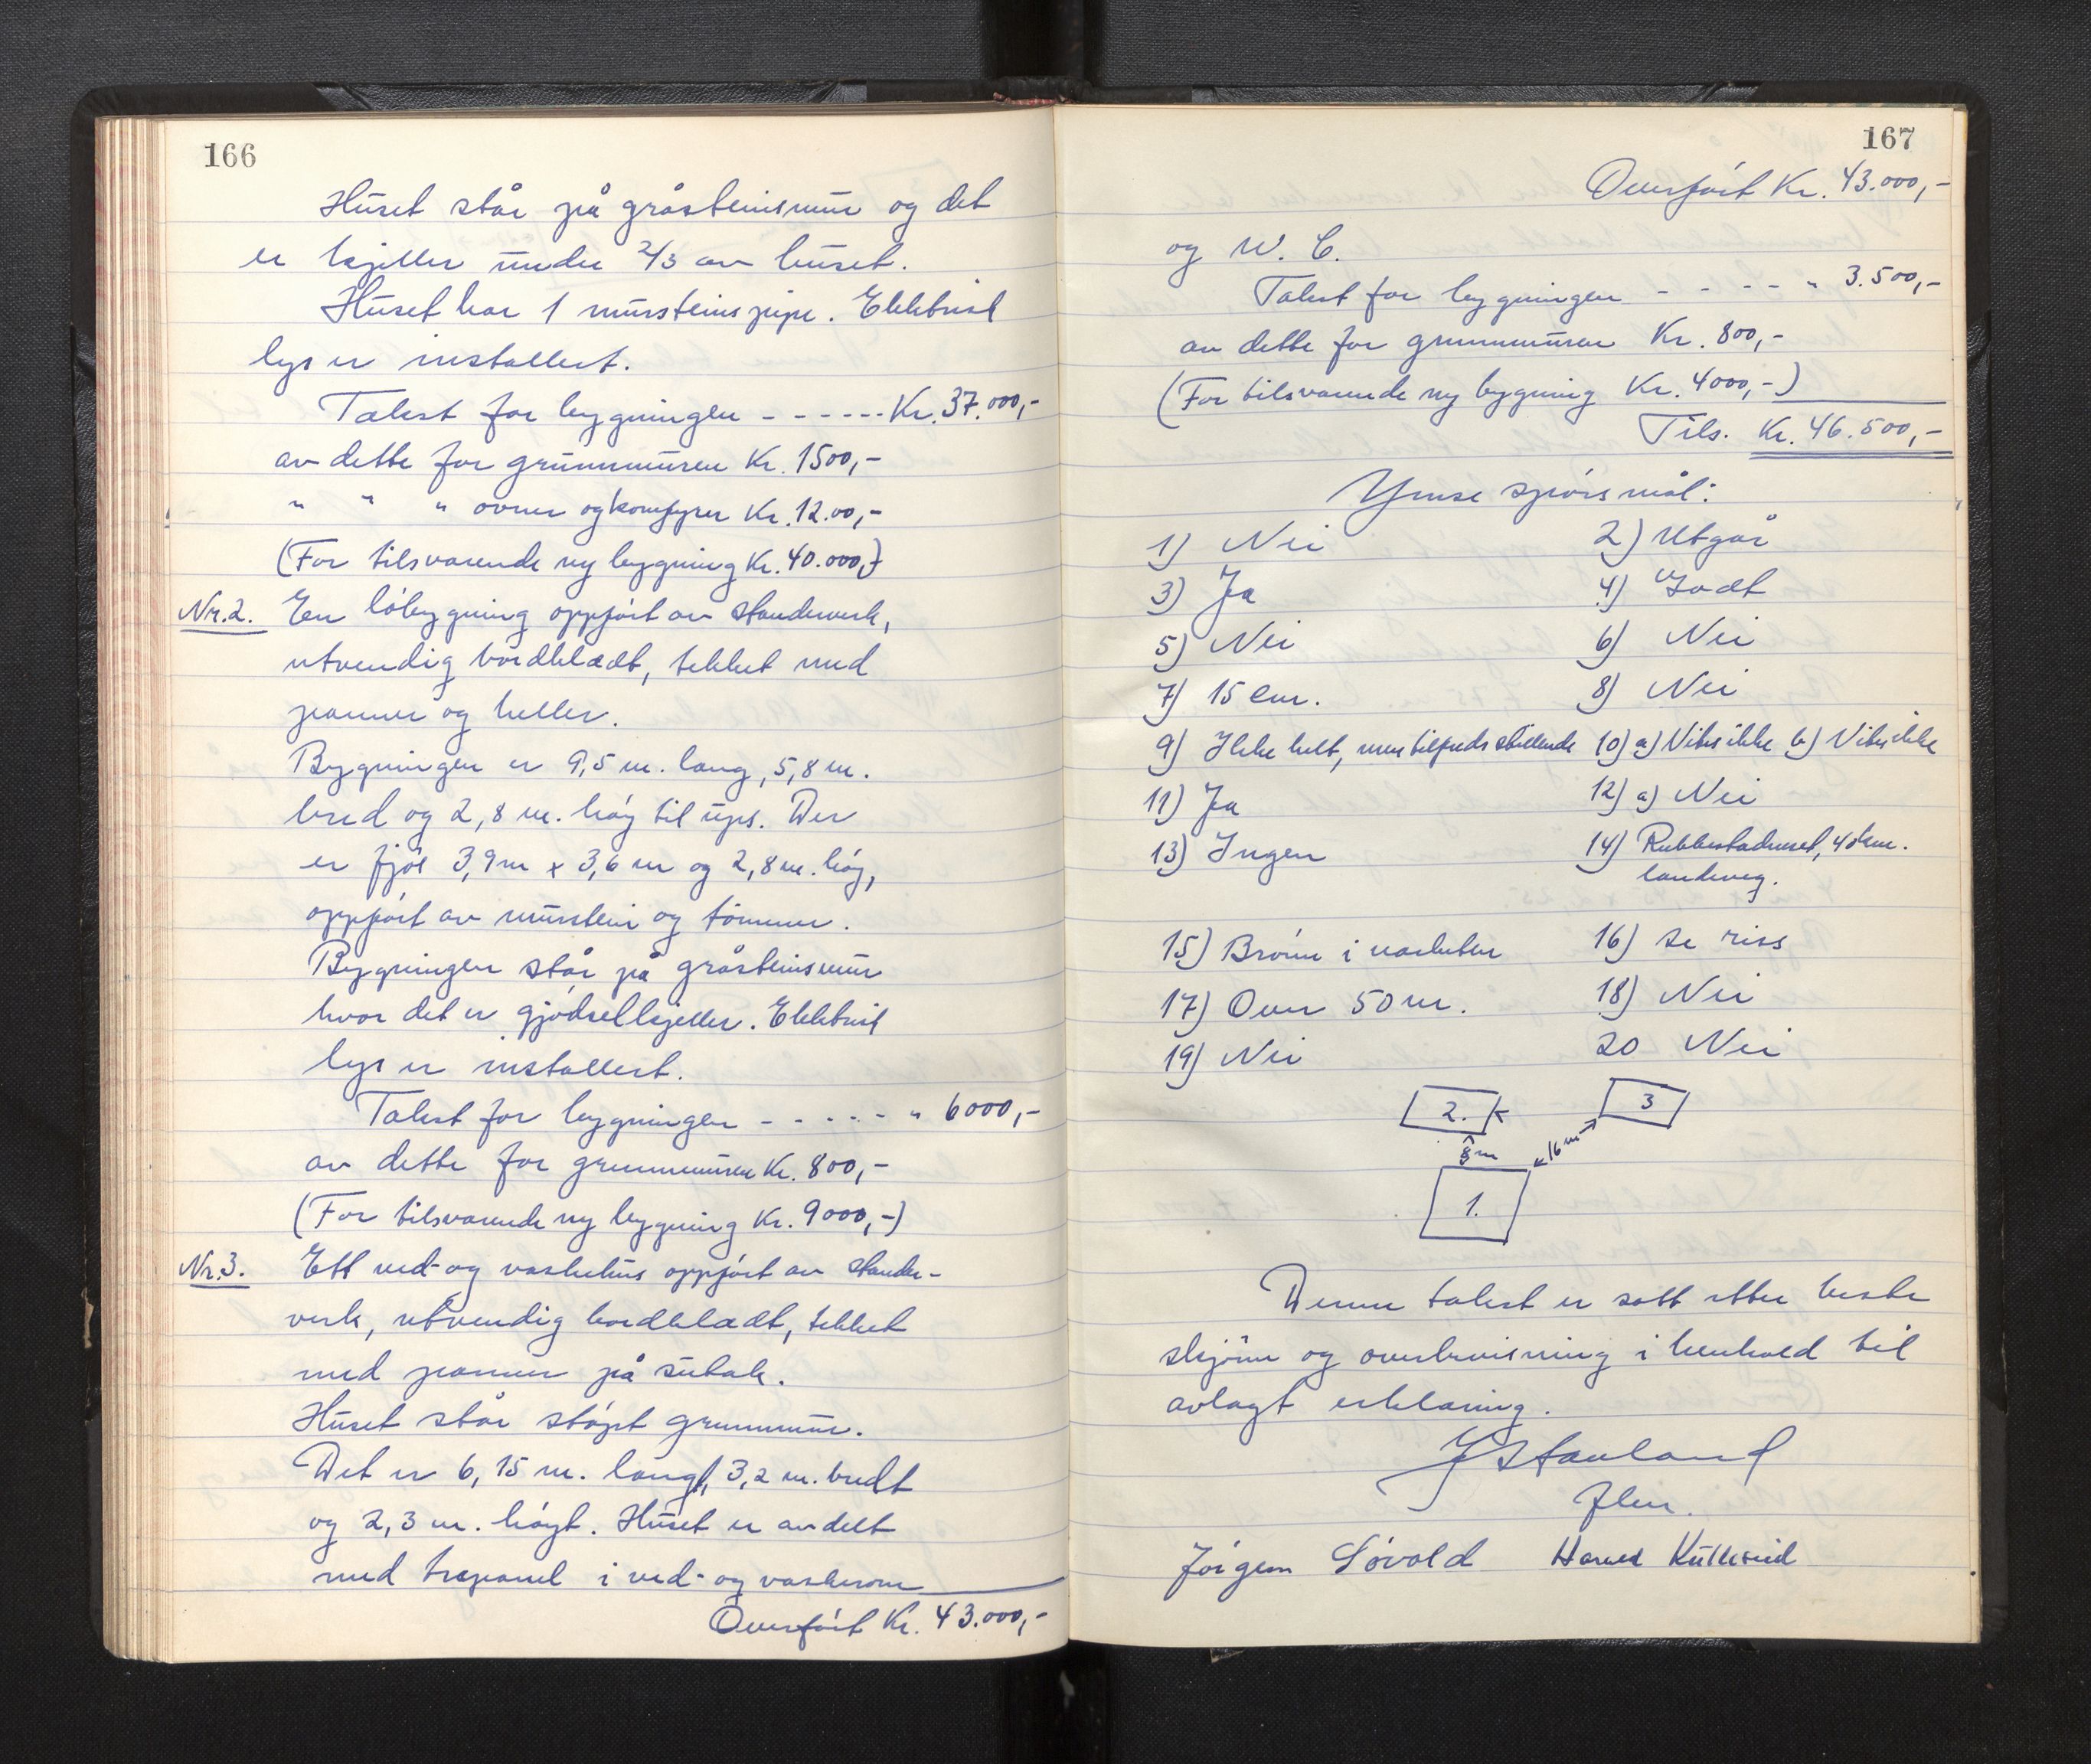 166
Huset står på gråsteinsmur og det
er kjeller under 2/3 av huset.
Huset har 1 mursteinspipe. Elektrisk
lys er installert.
Takst for bygningen - - - - - - Kr. 37.000,-
av dette for grunnmuren Kr. 1500,-
" " " ovner og komfyrer Kr. 12.00,-
(For tilsvarende ny bygning Kr. 40.000,-)
Nr. 2. En löbygning oppfört av standerverk,
utvendig bordkledt, tekket med
panner og heller.
Bygningen er 9,5 m. lang, 5,8 m.
bred og 2,8 m. höy til ups. Der
er fjös 3,9 m x 3,6 m og 2,8 m. höy,
oppfört av murstein og tömmer.
Bygningen står på gråsteinsmur
hvor det er gjödselkjeller. Elektrisk
lys er installert.
Takst for bygningen - - - - - " 6000,-
av dette for grunnmuren Kr. 800,-
(For tilsvarende ny bygning Kr. 9000,-)
Nr. 3. Ett ved- og vaskehus oppfört av stander-
verk, utvendig bordkledt, tekket
med panner på sutak.
Huset står stöpt grunnmur.
Det er 6,15 m. langt, 3,2 m. bredt
og 2,3 m. höyt. Huset er avdelt
med trepanel i ved- og vaskerom
Overfört Kr. 43.000,-
167
Overfört Kr. 43.000,-
og W. C.
Takst for bygningen - - - - " 3.500,-
av dette for grunnmuren Kr. 800,-
(For tilsvarende ny bygning Kr. 4000,-)
Tils. Kr. 46.500,-
Ymse spörsmål:
1) Nei 2) Utgår
3) Ja 4) Godt
5) Nei 6) Nei
7) 15 cm. 8) Nei
9) Ikke helt, men tilfredsstillende 10) a) Vites ikke b) Vites ikke
11) Ja 12) a) Nei
13) Ingen 14) Rubbestadneset, 4 km.
landeveg.
15) Brönn i nærheten 16) Se riss
17) Over 50 m. 18) Nei
19) Nei 20 Nei
2. 3
8 m 16 m
1.
Denne takst er satt etter beste
skjönn og overbevisning i henhold til
avlagt erklæring.
J Stavland
flm.
Jörgen Lövold Harald Kulleseid